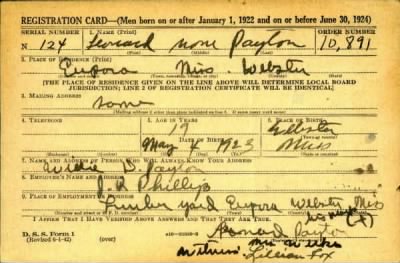 REGISTRATION CARD—(Men born on or after January 1, 1922 and on or before June 30, 1924)
SERIAL NUMBER 1. NAME (Print) ORDER NUMBER
N 124 Leonard none Payton 10,891
(First) (Middle) (Last)
2. PLACE OF RESIDENCE (Print)
Eupora Miss. Webster
(Number and street) (Town, township, village, or city) (County) (State)
[THE PLACE OF RESIDENCE GIVEN ON THE LINE ABOVE WILL DETERMINE LOCAL BOARD
JURISDICTION; LINE 2 OF REGISTRATION CERTIFICATE WILL BE IDENTICAL]
3. MAILING ADDRESS
same
[Mailing address if other than place indicated on line 2. If same insert word same]
4. TELEPHONE 5. AGE IN YEARS 6. PLACE OF BIRTH
19 Webster
DATE OF BIRTH (Town or county)
May 1923 Miss
(Exchange) (Number) (Mo.) (Day) (Yr.) (State or country)
7. NAME AND ADDRESS OF PERSON WHO WILL ALWAYS KNOW YOUR ADDRESS
Willie Payton
8. EMPLOYER'S NAME AND ADDRESS
Phillips
9. PLACE OF EMPLOYMENT OR BUSINESS
Lumber yard Eupora Webster Miss
(Number and street or R. F. D. number) (Town) (County) (State)
I AFFIRM THAT I HAVE VERIFIED ABOVE ANSWERS AND THAT THEY ARE TRUE.
his mark (X)
D. S. S. Form 1 Leonard Payton
(Revised 6-1-42)
witness Mrs
Lillian Fox